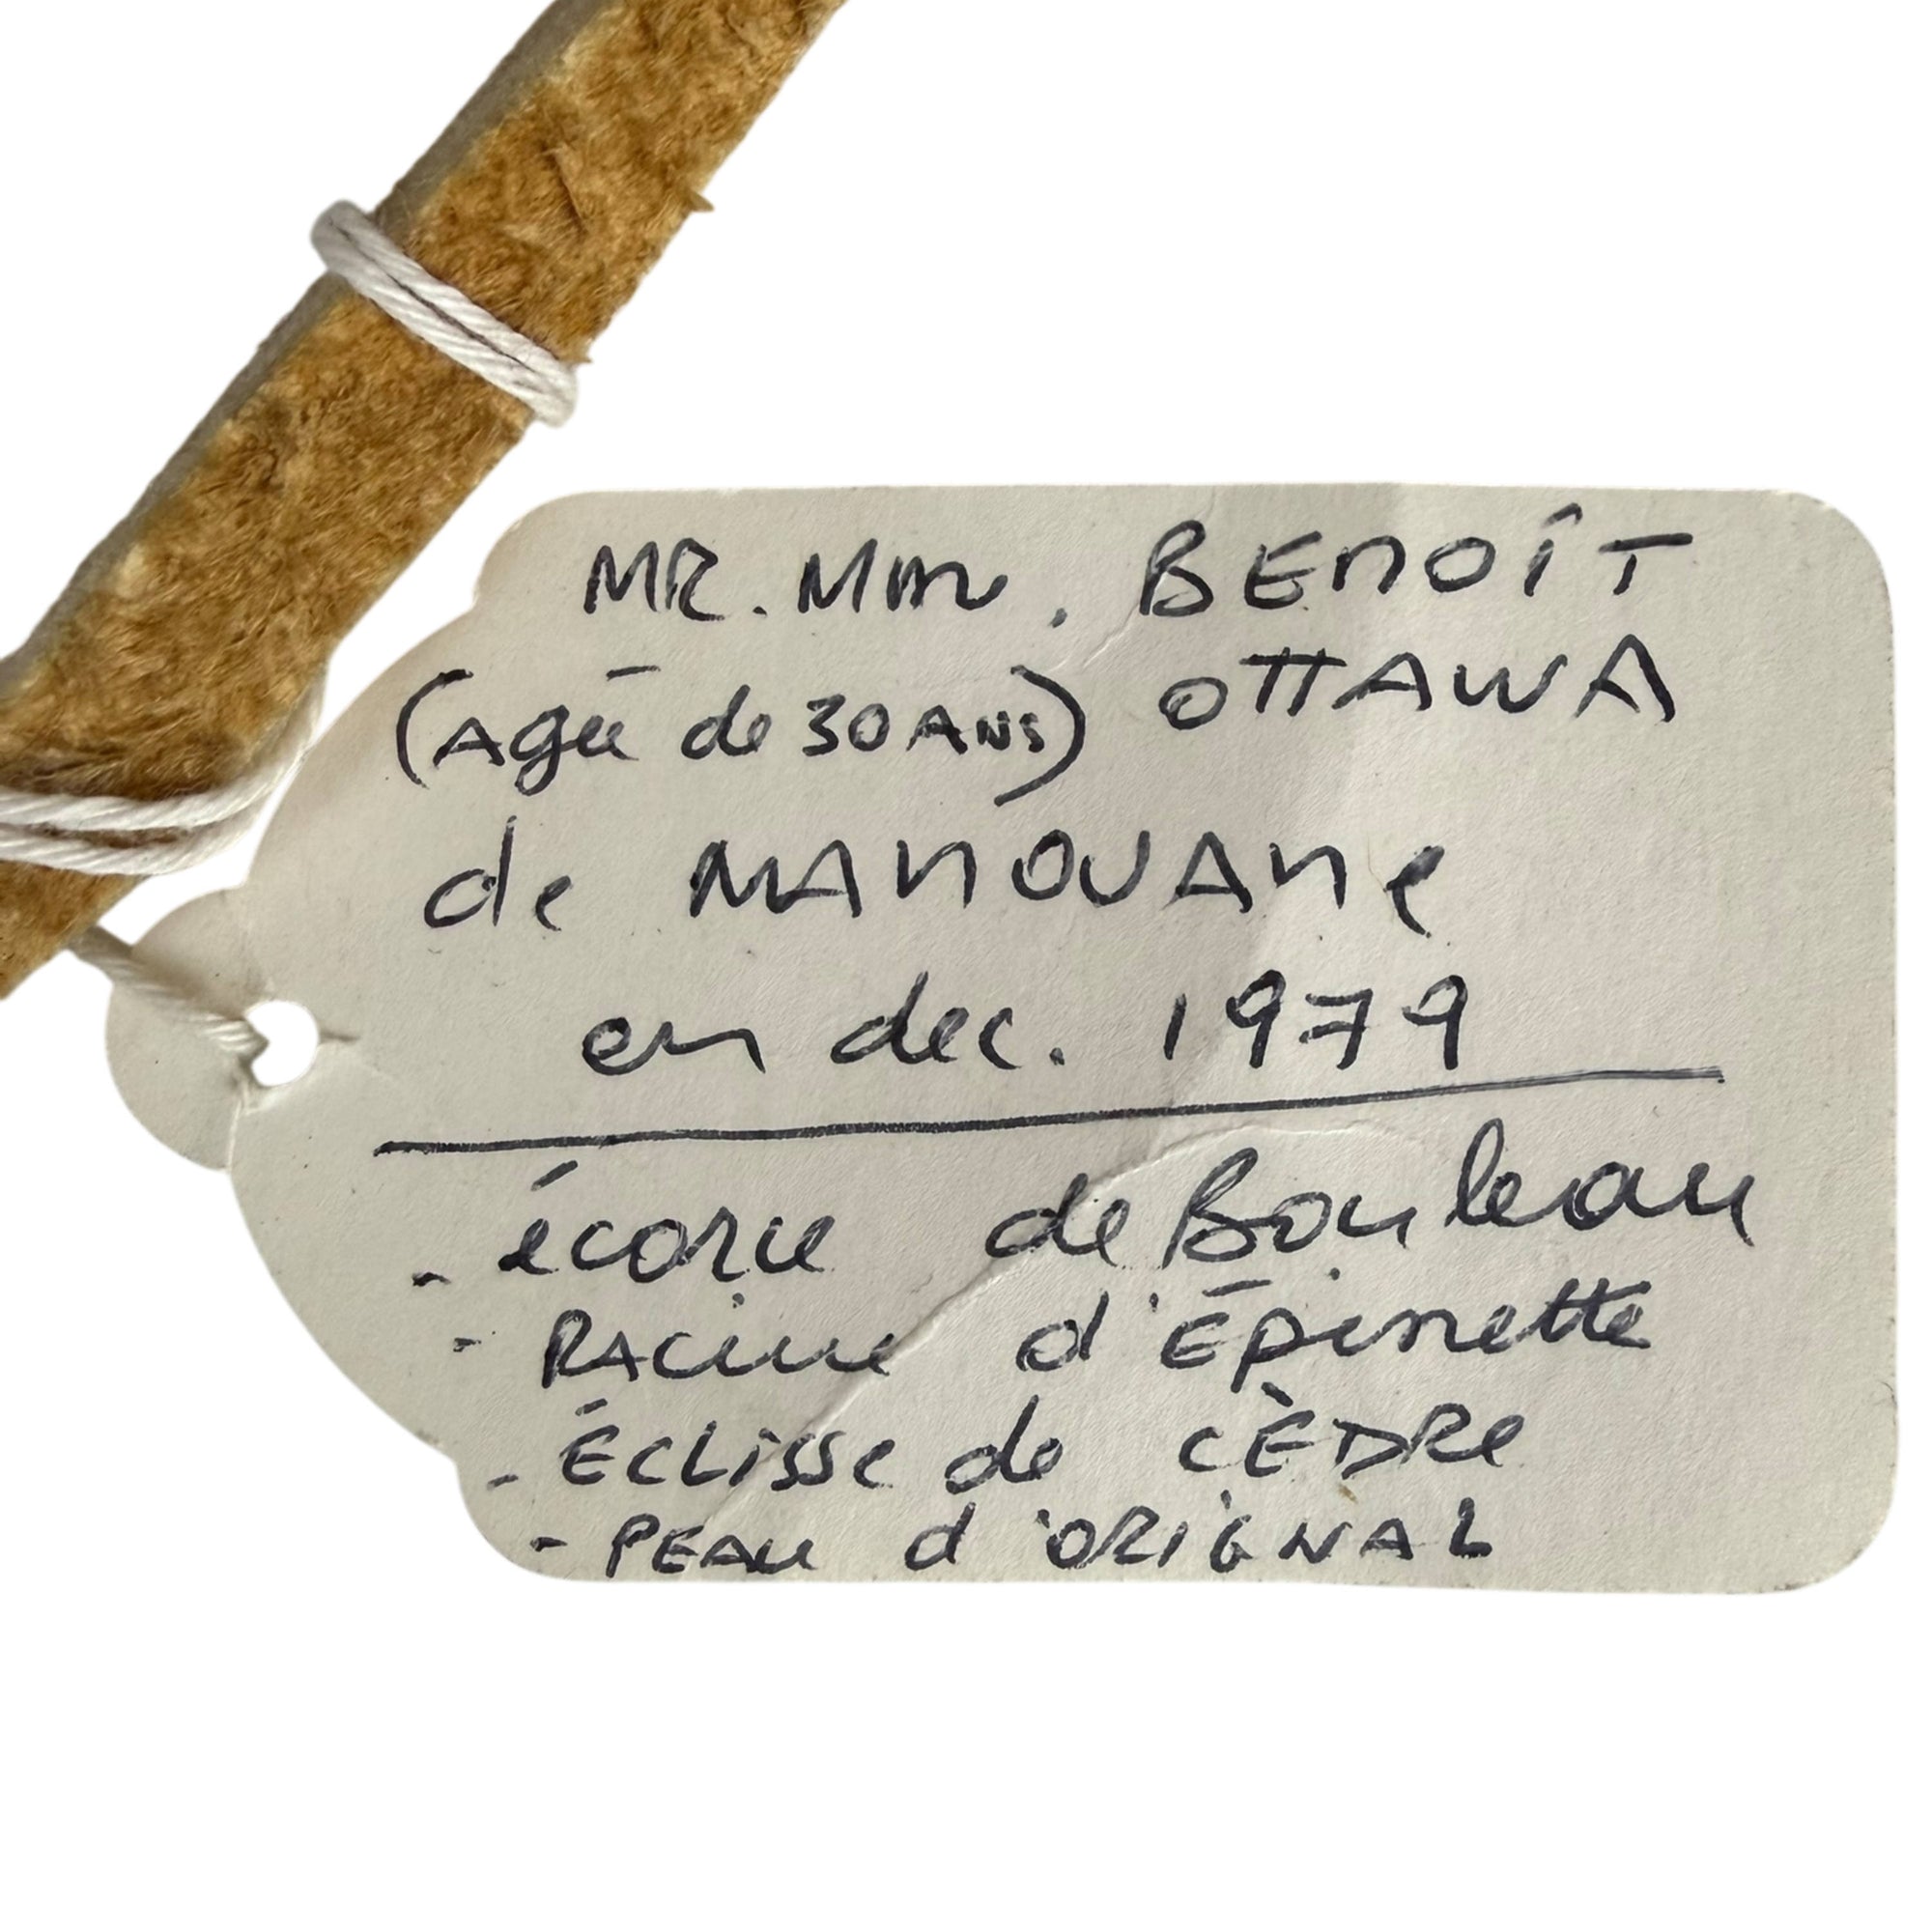 MR. Mme. BENOÎT
(Agée de 30 ANS) OTTAWA
de MANOUANe
en dec. 1979
- écorce de Bouleau
- RAcine d'Épinette
- ÉCLisse de CÈDRe
- PEAu d'ORIGNAL